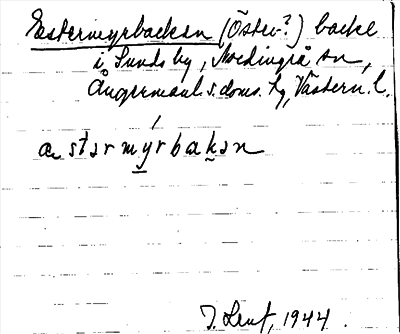 Estermyrbacken (Öster-?) backe
i Sunds by, Nordingrå sn,
Ångermanl. s. doms. hg, Västern. l.
æstərmyrbakən
J. Lenf, 1944